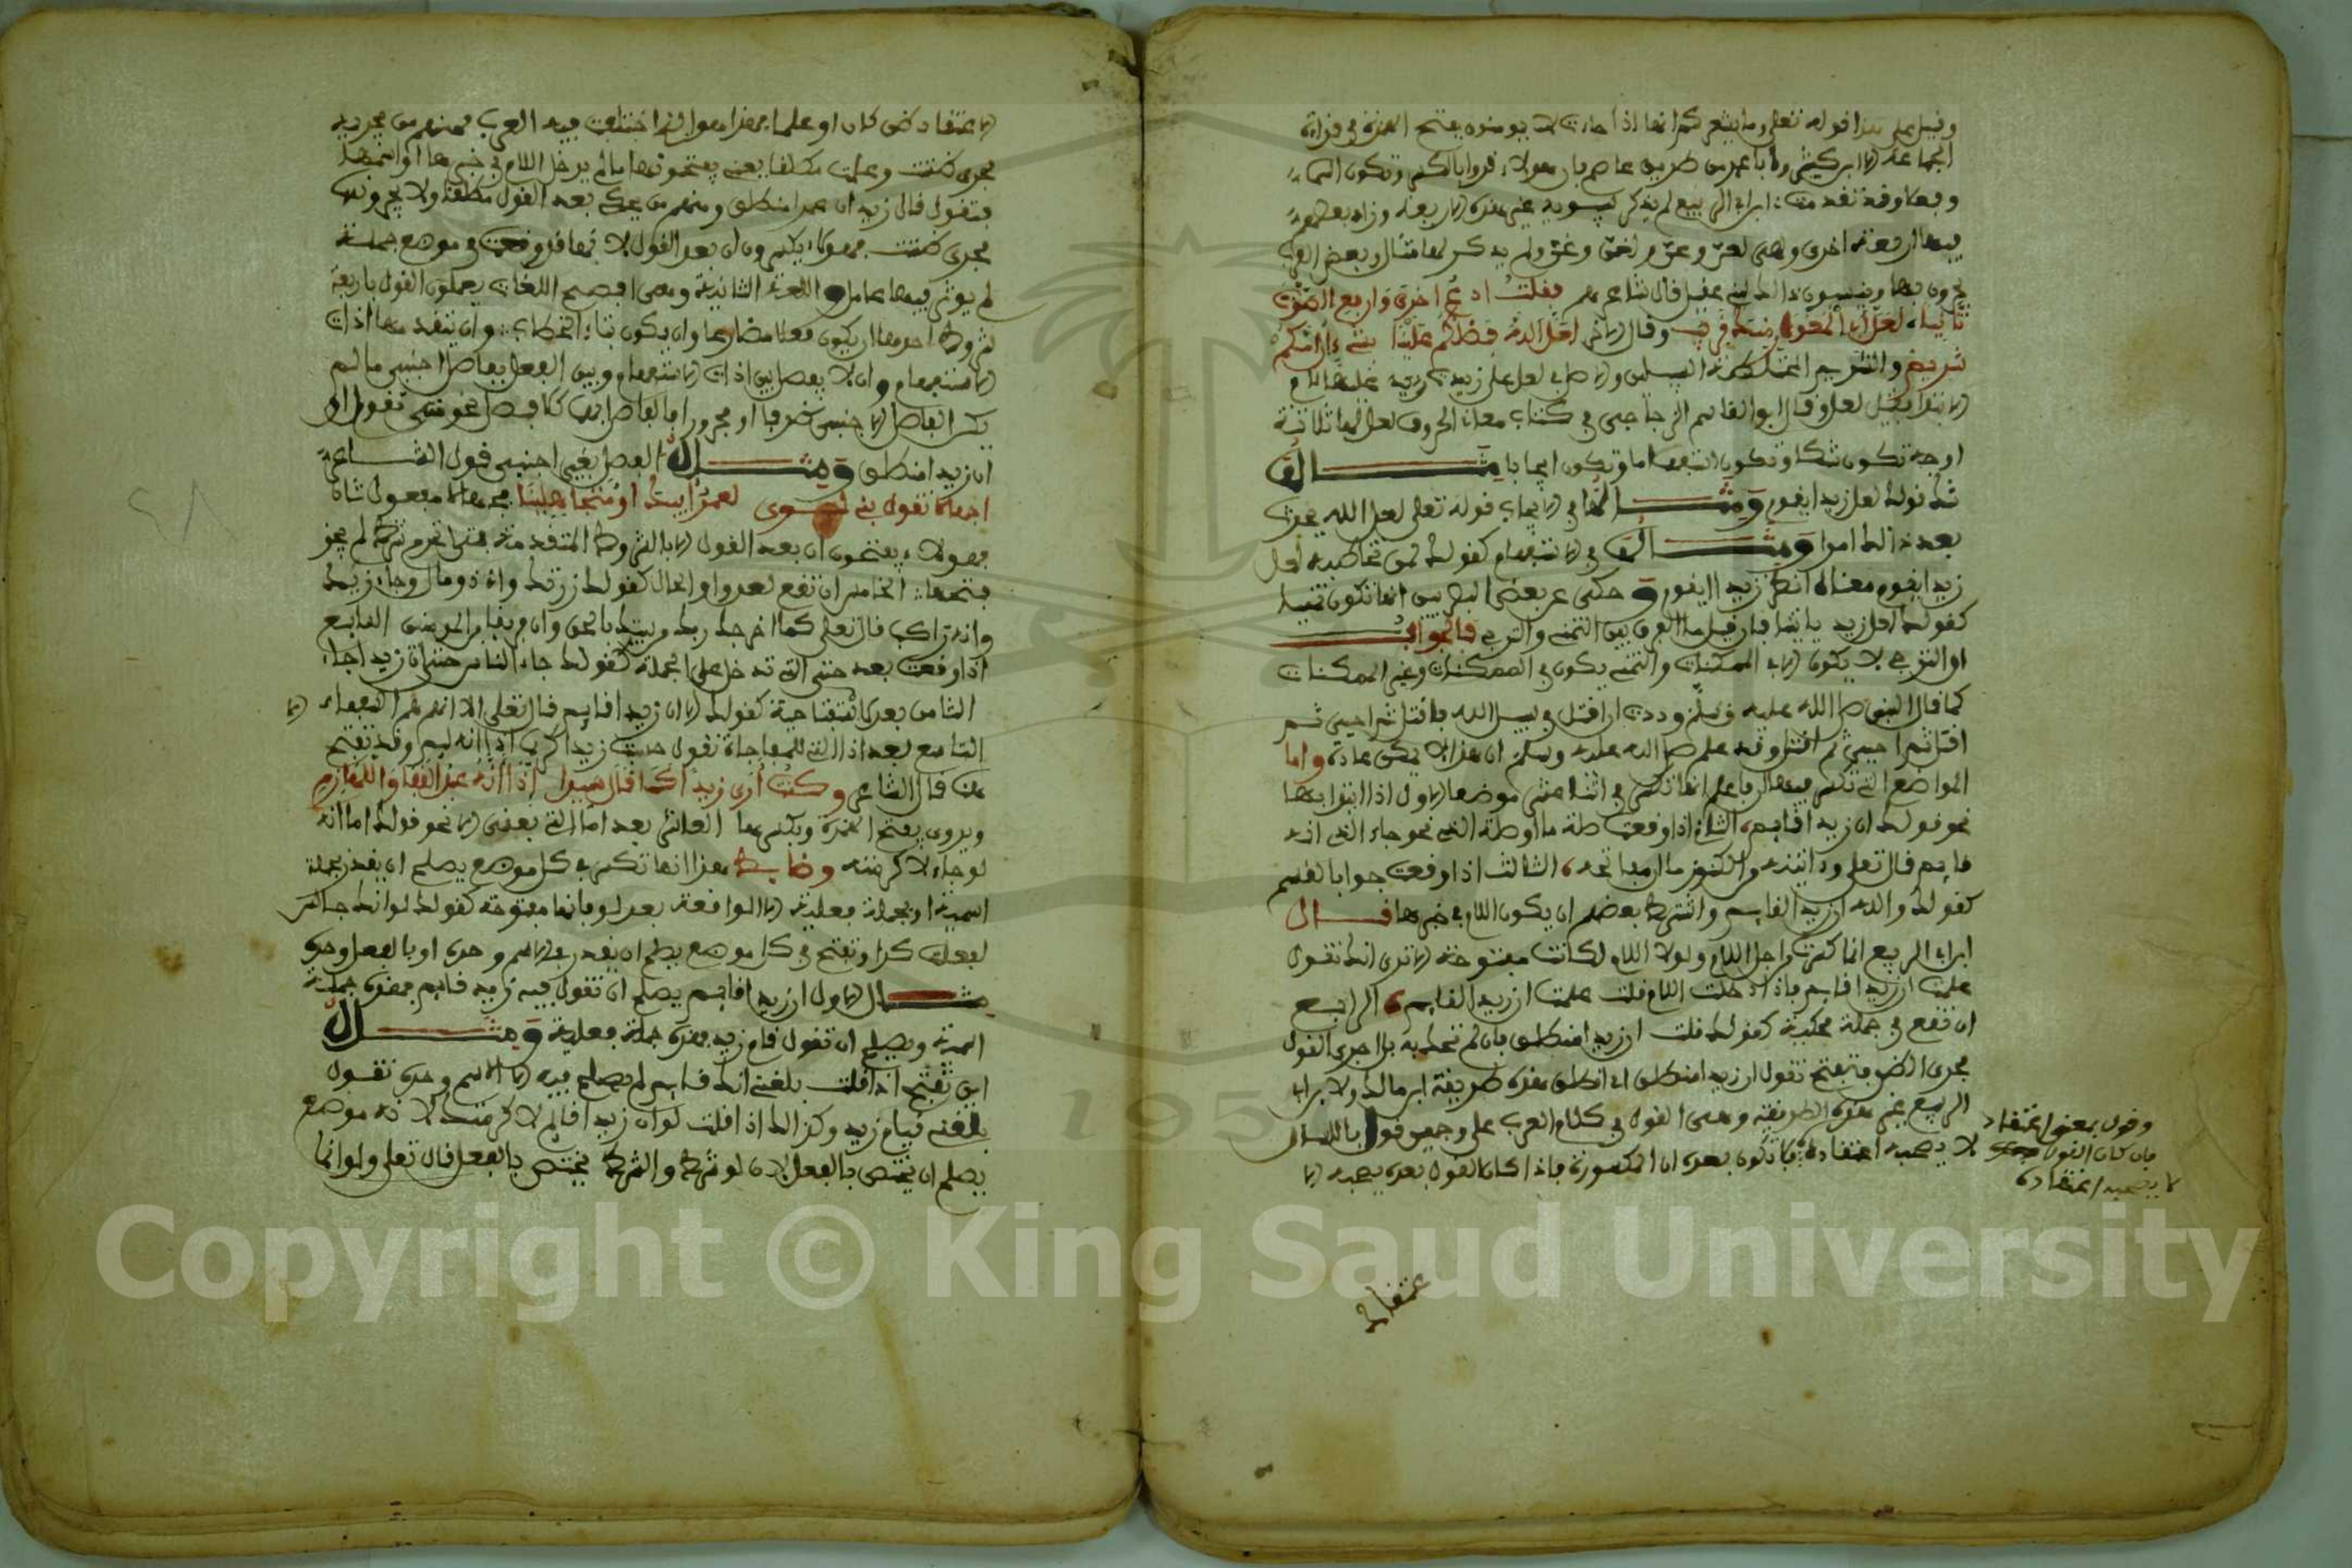 وقيل على هذا قوله تعلى وما يشعركم انها اذا جاءت لا يومنون بفتح الهمزة في قراءة
الجماعة الا ابن كثير وابا عمرو من طريق عاصم بان هولاء قروا بالكسر وتكون التماء
وفعلا وقد تقدمت ابن ابي الربيع لم يذكر سيبويه غير هذه الاربعة وزاد بعضهم
فيها اربعة اخرى وهي لعن وعن ولغن وغن ولم يذكر لها مثال وبعض العرب
يجرون بها وينسبون ذالك لبني عقيل قال شاعرهم فقلت ادع اخرى وارفع الصوت
ثانيا لعل ابي المغوار منك قريب وقال الاخر لعل الله فضلكم علينا بشيء ان امكم
شريم والشريم المختلطة السبيلين والاصل في لعل عل زيدت عليها لام
الابتداء فقيل لعل وقال ابو القاسم الزجاجي في كتاب معاني الحروف لعل لها ثلاثة
اوجه تكون شكا وتكون استفهاما وتكون ايجابا مثال
شك قولك لعل زيدا يقوم ومثالها في الايجاب قوله تعلى لعل الله يحدث
بعد ذالك امرا ومثال في الاستفهام كقولك لمن تخاطبه لعل
زيدا يقوم معناه اتظن زيدا يقوم وحكي عن بعض النحويين انها تكون تمنيا
كقولك لعل زيد ياتينا فان قيل ما الفرق بين التمني والترجي فالجواب
ان الترجي لا يكون الا في الممكنات والتمني يكون في الممكنات وغير الممكنات
كما قال النبي صلى الله عليه وسلم وددت ان اقتل في سبيل الله فاقتل ثم احيى ثم
اقتل ثم احيى ثم اقتل وقد علم صلى الله عليه وسلم ان هذا لا يمكن عادة واما
المواضع التي تكسر فيها ان فاعلم انها تكسر في اثنا عشر موضعا الاول اذا ابتدا بها
نحو قولك ان زيدا قائم الثاني اذا وقعت صلة ما او صلة الذي نحو جاء الذي انه
قايم قال تعلى وءاتينه من الكنوز ما ان مفاتحه الثالث اذا وقعت جوابا لقسم
كقولك والله ان زيدا لقايم واشترط بعضهم ان يكون اللام في خبرها قال
ابن ابي الربيع انما كسرت من اجل اللام ولولا اللام لكانت مفتوحة الا ترى انك تقول
علمت ان زيدا قايم فاذا ادخلت اللام قلت علمت ان زيدا لقايم الرابع
ان تقع في جملة محكية كقولك قلت ان زيدا منطلق فان لم تحك به بل اجري القول
مجرى الظن فتفتح تقول ان زيدا منطلق اي اتظن هذه طريقة ابن مالك ولابن ابي
الربيع غير هذه الطريقة وهي القول في كلام العرب على وجهين قول باللسان
لا يصحبه اعتقاده فما تكون بعده ان الا مكسورة فاذا كان القول بعده يصحبه الا
وقول بمعنى اعتقاد
فان كان القول
لا يصحبه اعتقاده
عتقاد
الاعتقاد ظن كان او علما فهذا هو الذي اختلفت فيه العرب فمنهم من يجريه
مجرى ظننت وعلمت مطلقا يعني يفتحونها ما لم يدخل اللام في خبرها او اسمها
فتقول قال زيد ان عمرا منطلق ومنهم من يحكي بعد القول مطلقا ولا يجرونه
مجرى ظننت فهولاء يكسرون ان بعد القول لانها قد وقعت في موضع جملة
لم يوثر فيها عامل واللغة الثانية وهي افصح اللغات يعملون القول باربعة
شروط احدها ان يكون فعلا مضارعا وان يكون بتاء الخطاب وان يتقدمها اداة
الاستفهام وان لا يفصل بين اداة الاستفهام وبين الفعل بفاصل اجنبي ما لم
يكن الفاصل الاجنبي ظرفا او مجرورا فالفاصل بهما كلا فصل نحو متى تقول
ان زيدا منطلق ومثال الفصل بغير اجنبي قول الشاعر
اجهالا تقول بني لؤي لعمر ابيك ام متجاهلينا فجهالا مفعول ثان
فهولاء يفتحون ان بعد القول الا بالشروط المتقدمة فمتى انخرم شرط لم يجز
فتحها الخامس ان تقع بعد واو الحال كقولك زرتك وانه ذو مال وجاء زيد
وانه راكب قال تعلى كما اخرجك ربك من بيتك بالحق وان فريقا من المومنين السابع
اذا وقعت بعد حتى التي تدخل على الجملة كقولك جاء الناس حتى ان زيدا جاء
الثامن بعد الا الاستفتاحية كقولك الا ان زيدا قايم قال تعلى الا انهم هم السفهاء الا
التاسع بعد اذا التي للمفاجاة تقول حسبت زيدا كريما اذا انه ليم وقد تفتح
قال الشاعر وكنت ارى زيدا كما قال سيدا اذا انه عبد القفا واللهازم
ويروى بفتح الهمزة وبكسرها العاشر بعد اما التي بمعنى الا نحو قولك اما انه
لو جاء لاكرمته وضابط هذا انها تكسر في كل موضع يصلح ان يقدر بجملة
اسمية او بجملة فعلية الا الواقعة بعد لو فانها مفتوحة كقولك لو انك جالس
لفعلت كذا وتفتح في كل موضع يصلح ان يقدر بالاسم وحده او بالفعل وحده
مثال الاول ان زيدا قايم يصلح ان تقول فيه زيد قايم فهذه جملة
اسمية ويصلح ان تقول قام زيد فهذه جملة فعلية ومثال
اين تفتح اذا قلت بلغني انك قايم لم يصلح فيه الا الاسم وحده تقول
بلغني قيام زيد وكذالك اذا قلت لو ان زيدا قايم لاكرمتك لانه موضع
يصلح ان يختص بالفعل لان لو شرط والشرط يختص بالفعل قال تعلى ولو انما
Copyright © King Saud University
195